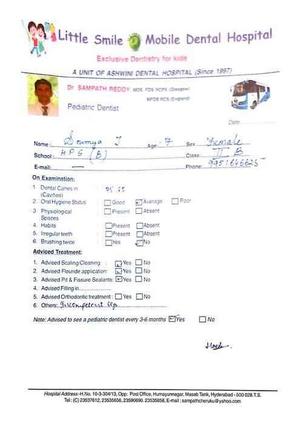 Little Smile Mobile Dental Hospital
Exclusive Dentistry for kids
A UNIT OF ASHWINI DENTAL HOSPITAL (Since 1997)
Dr SAMPATH REDDY MDS, FDS RCPS (Glasgow)
MFDS RCS (England)
Pediatric Dentist
Name: Soumya J Age: 7 Sex Female
School: HPS (B) Class: II B
E-mail: — Phone:
On Examination:
1 Dental Caries in (Cavities) 75 55
2 Oral Hygiene Status Good Average Poor
3 Physiological Spaces Present Absent
4 Habits Present Absent
5 Irregular teeth Present Absent
6 Brushing twice Yes No
Advised Treatment:
1. Advised Scaling Cleaning : Yes No
2. Advised Flouride application: Yes No
3. Advised Pit & Fissure Sealants: Yes No
4. Advised Filling in
5. Advised Orthodontic treatment : Yes No
6. Others: Incompetent lip
Note: Advised to see a pediatric dentist every 3-6 months Yes No
Hospital Address -H.No. 10-3-304/13, Opp. Post Office, Humayunnagar, Masab Tank, Hyderabad - 500 028 T.S.
Tel: (C) 23537612, 23535656, 23590690, 23535658, E-mail : sampathcheruku@yahoo.com